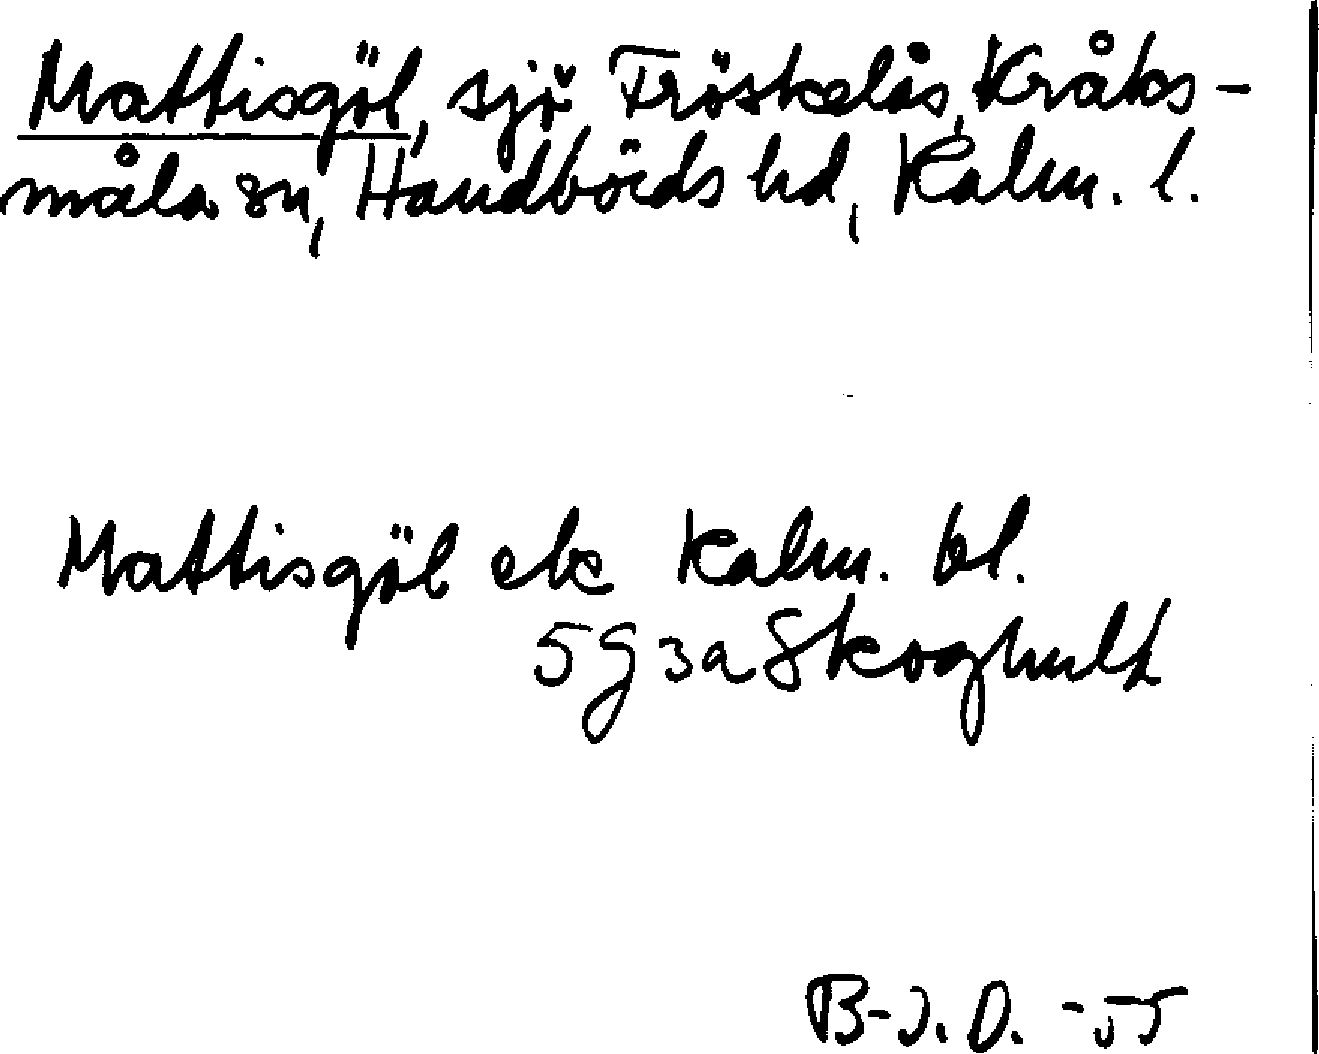 Mattisgöl, sjö Fröskelås, Kråks-
måla sn, Handbörds hd, Kalm. l.
Mattisgöl ek Kalm. bl.
5 g 3 a Skoghult
B-J. O. -55